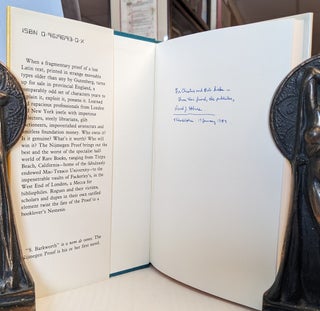 ISBN 0-9609893-0-X
When a fragmentary proof of a lost
Latin text, printed in strange movable
types older than any by Gutenberg, turns
up for sale in provincial England, a
comparably odd set of characters vies to
explain it, exploit it, possess it. Learned
rapacious professionals from London
New York jostle with imperious
directors, steely librarians, gilt
aristocrats, impoverished aristocrats and
limitless foundation money. Who owns it?
Is it genuine? What's it worth? Who will
win it? The Nijmegen Proof brings out the
best and the worst of the specialist half-
world of Rare Books, ranging from Tirpa
Beach, California—home of the fabulously
endowed Mac-Texaco University—to the
impenetrable vaults of Fackerley's, in the
West End of London, a Mecca for
bibliophiles. Rogues and their victims,
scholars and dupes in their own rarified
element twist the fate of the Proof to a
booklover's Nemesis
"S. Barkworth" is a nom de plume. The
Nijmegen Proof is his or her first novel.
For Charles and
from your friend, the publisher,
January